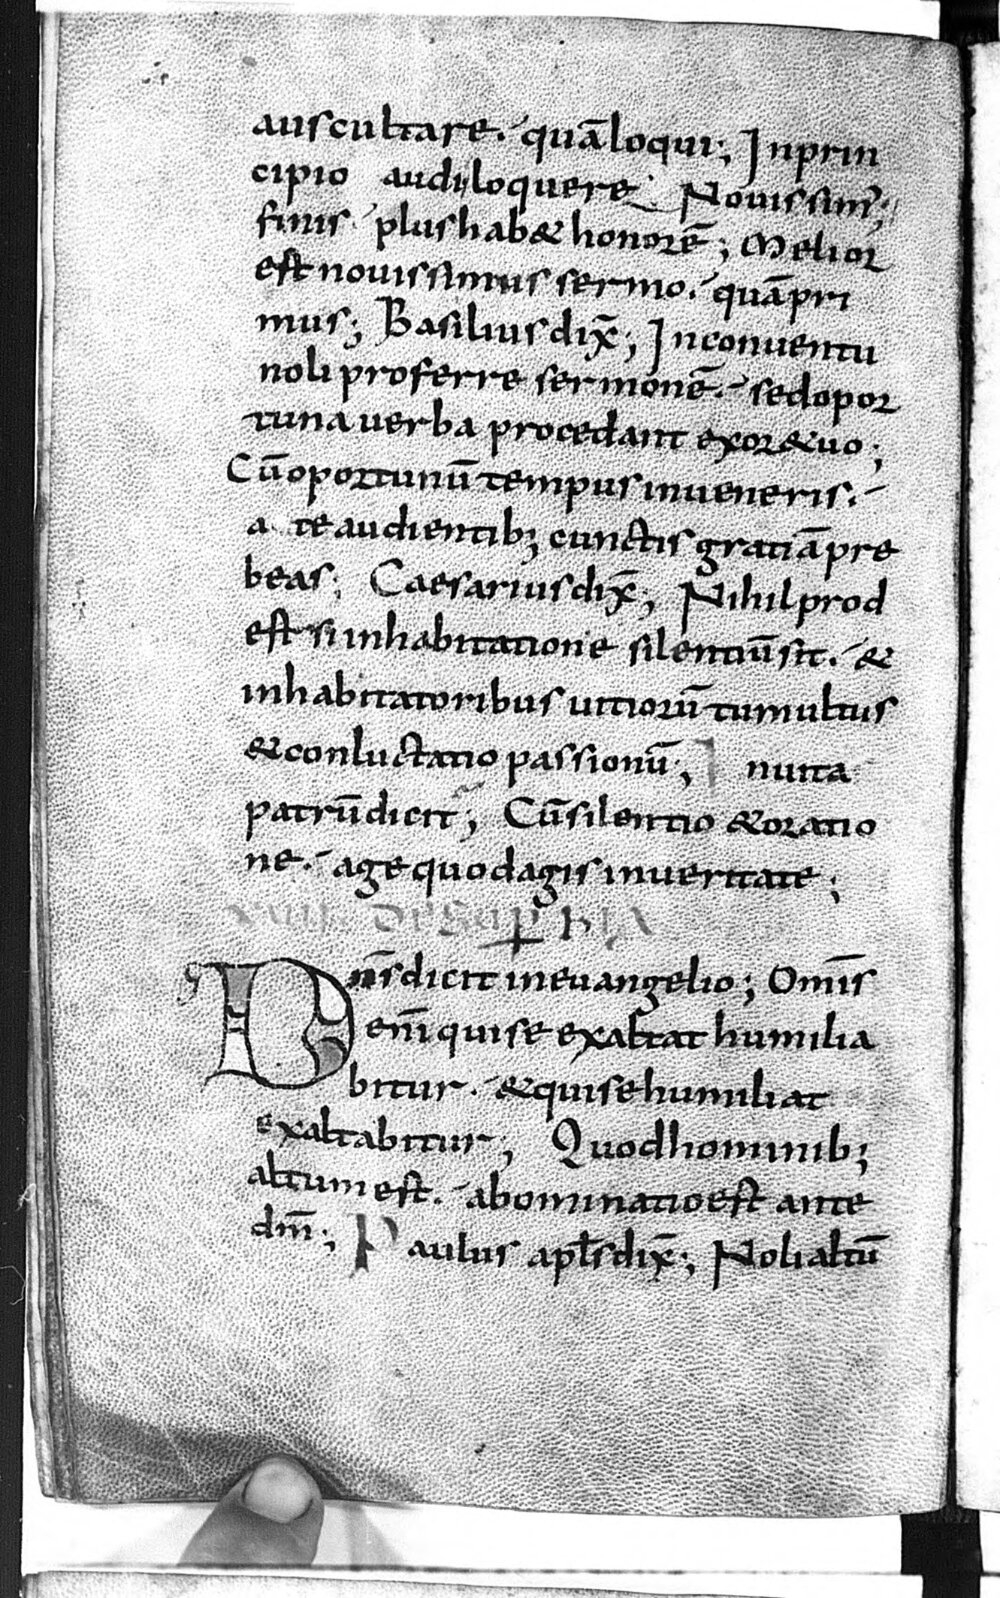 auscultare. quā loqui; In prin
cipio audi loquere. Novissimꝰ;
finis plus hab& honorē; Melior
est novissimus sermo. quā pri
mus; Basilius dix̄; In conventu
noli proferre sermonē. sed opor
tuna verba procedant ex ore tuo;
Cū oportunū tempus inveneris.
a te audientib; cunctis gratiā pre
beas; Caesarius dix̄; Nihil prod
est si in habitatione silentiū sit. &
in habitatoribus vitiorū tumultus
& conluctatio passionū; In vita
patrū dicit; Cū silentio & oratio
ne. age quod agis in veritate;
XVIII. DE SUPERBIA
Dn̄s dicit in evangelio; Om̄is
enī qui se exaltat humilia
bitur. & qui se humiliat
exaltabitur; Quod hominib;
altum est. abominatio est ante
dm̄; Paulus apl̄s dix̄; Noli altū